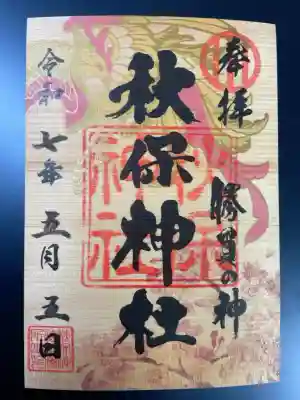 奉拝
勝負の神
秋保神社
令和七年五月五日